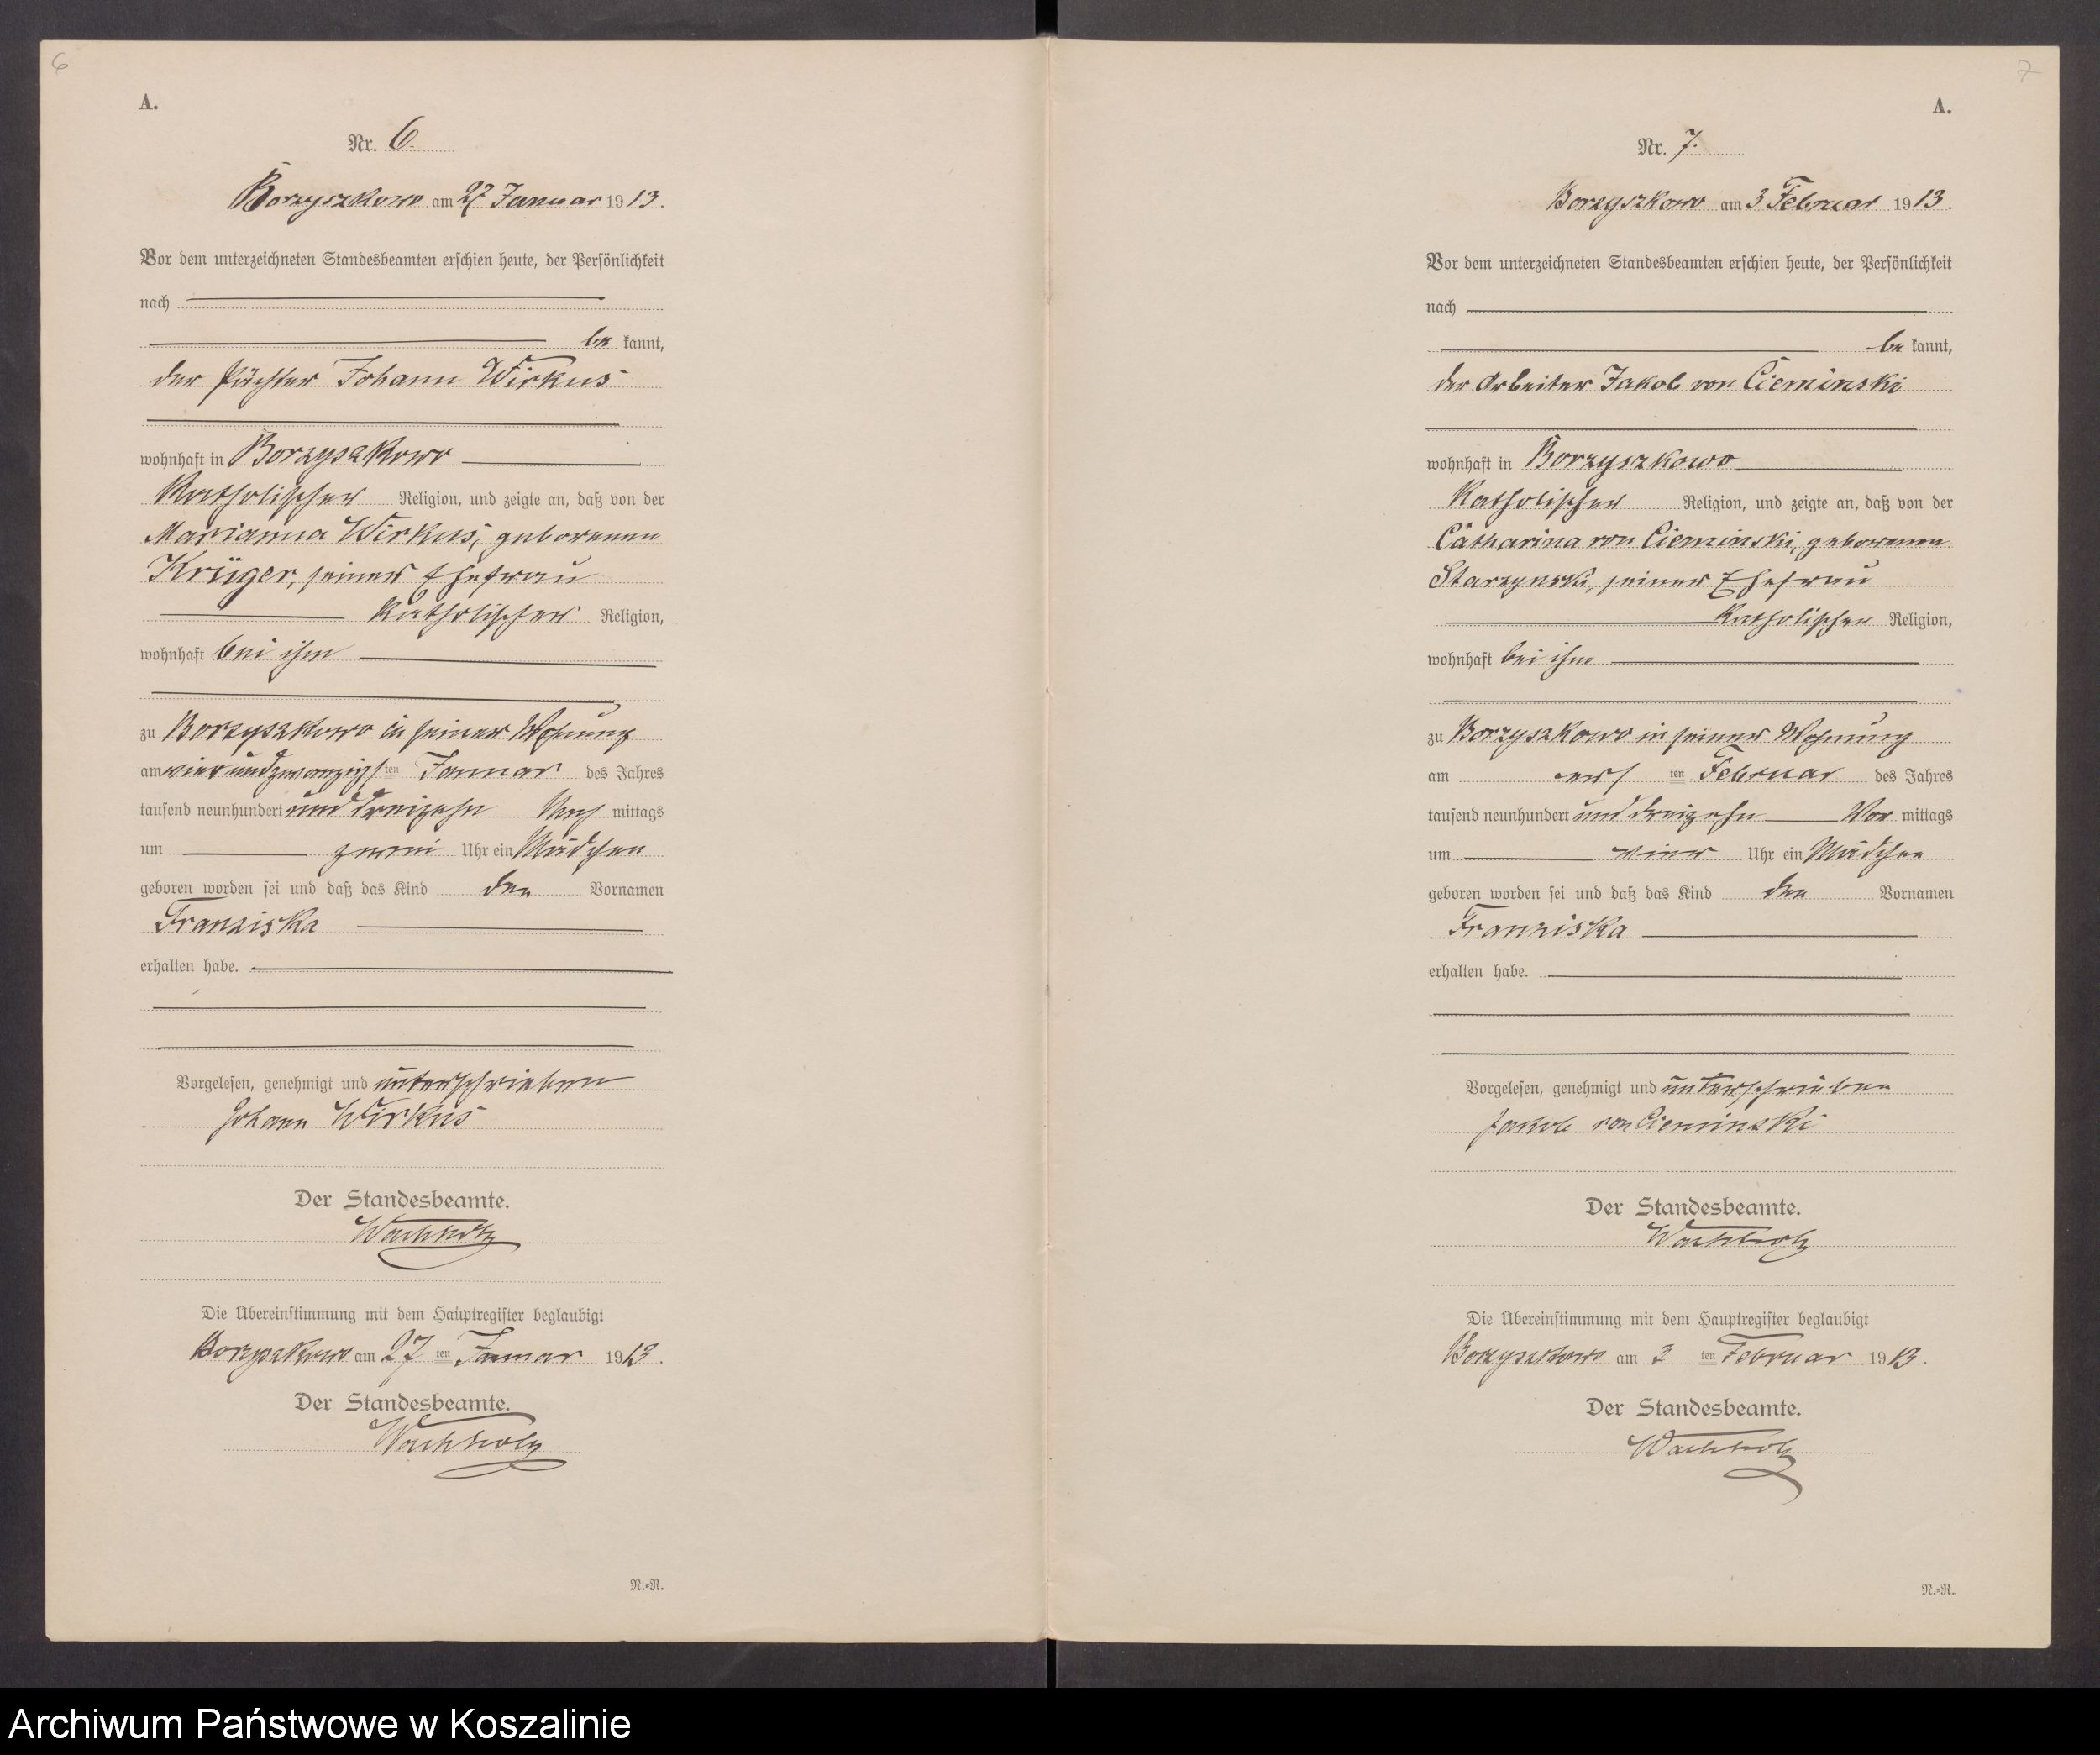 6
A.
Nr. 6.
Borzyszkowo am 27 Januar 1913.
Vor dem unterzeichneten Standesbeamten erschien heute, der Persönlichkeit
nach
be kannt,
der Pächter Johann Wirkus
wohnhaft in Borzyszkowo
katholischer Religion, und zeigte an, daß von der
Marianna Wirkus, geborenen
Krüger, seiner Ehefrau
katholischer Religion,
wohnhaft bei ihm
zu Borzyszkowo in seiner Wohnung
am vierundzwanzigsten Januar des Jahres
tausend neunhundert und dreizehn Nach mittags
um zwei Uhr ein Mädchen
geboren worden sei und daß das Kind den Vornamen
Franziska
erhalten habe.
Vorgelesen, genehmigt und unterschrieben
Johann Wirkus
Der Standesbeamte.
Wachholz
Die Übereinstimmung mit dem Hauptregister beglaubigt
Borzyszkowo am 27 ten Januar 1913.
Der Standesbeamte.
Wachholz
N.-R.
7
A.
Nr. 7.
Borzyszkowo am 3 Februar 1913.
Vor dem unterzeichneten Standesbeamten erschien heute, der Persönlichkeit
nach
be kannt,
der Arbeiter Jakob von Cieminski
wohnhaft in Borzyszkowo
katholischer Religion, und zeigte an, daß von der
Catharina von Cieminski, geborenen
Starzynski, seiner Ehefrau
katholischer Religion,
wohnhaft bei ihm
zu Borzyszkowo in seiner Wohnung
am ers ten Februar des Jahres
tausend neunhundert und dreizehn Vor mittags
um vier Uhr ein Mädchen
geboren worden sei und daß das Kind den Vornamen
Franziska
erhalten habe.
Vorgelesen, genehmigt und unterschrieben
Jakob von Cieminski
Der Standesbeamte.
Wachholz
Die Übereinstimmung mit dem Hauptregister beglaubigt
Borzyszkowo am 3 ten Februar 1913.
Der Standesbeamte.
Wachholz
N.-R.
Archiwum Państwowe w Koszalinie